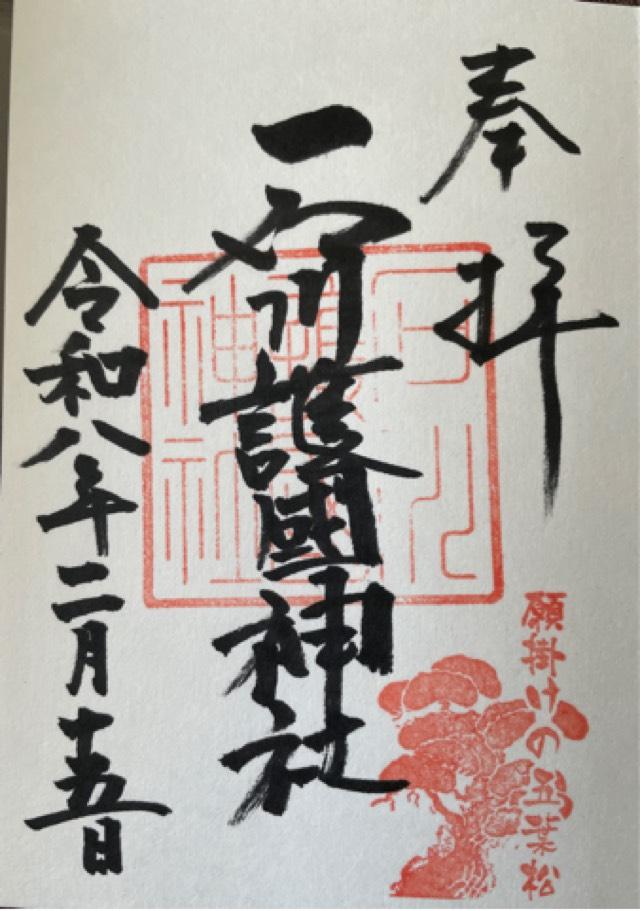 奉拝
石川護國神社
令和八年二月十五日
願掛けの五葉松